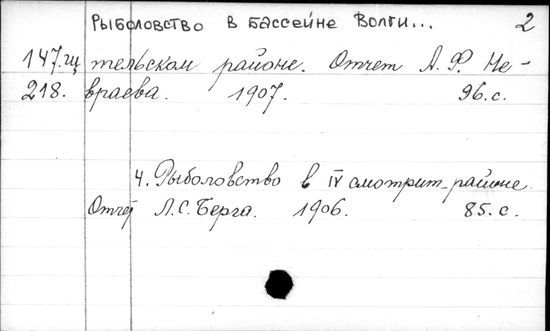 Рыболовство в бассейне Волги... 2
147.гц тельском районе. Отчет А. Ф. Не-
218. враева. 1907. 96.с.
4. Рыболовство в IV смотрит. районе
Отчет Л.С. Берга. 1906. 85.с.